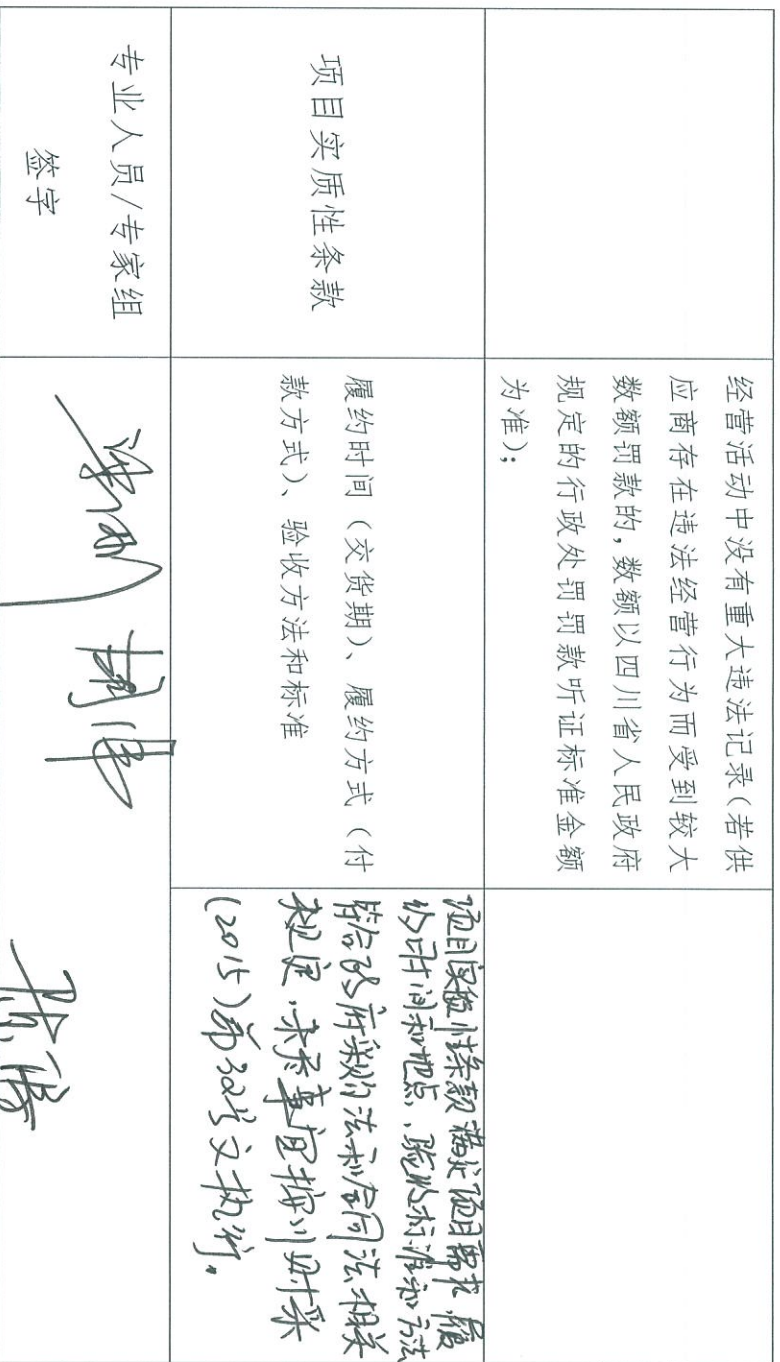 经营活动中没有重大违法记录(若供
应商存在违法经营行为而受到较大
数额罚款的,数额以四川省人民政府
规定的行政处罚罚款听证标准金额
为准);
项目实质性条款
履约时间(交货期)、履约方式(付
款方式)、验收方法和标准
项目实质性条款满足项目需求,履
约时间和地点、验收标准和方法
符合政府采购法和合同法相关
规定,未尽事宜按川财采
(2015)第32号文执行。
专业人员/专家组
签字